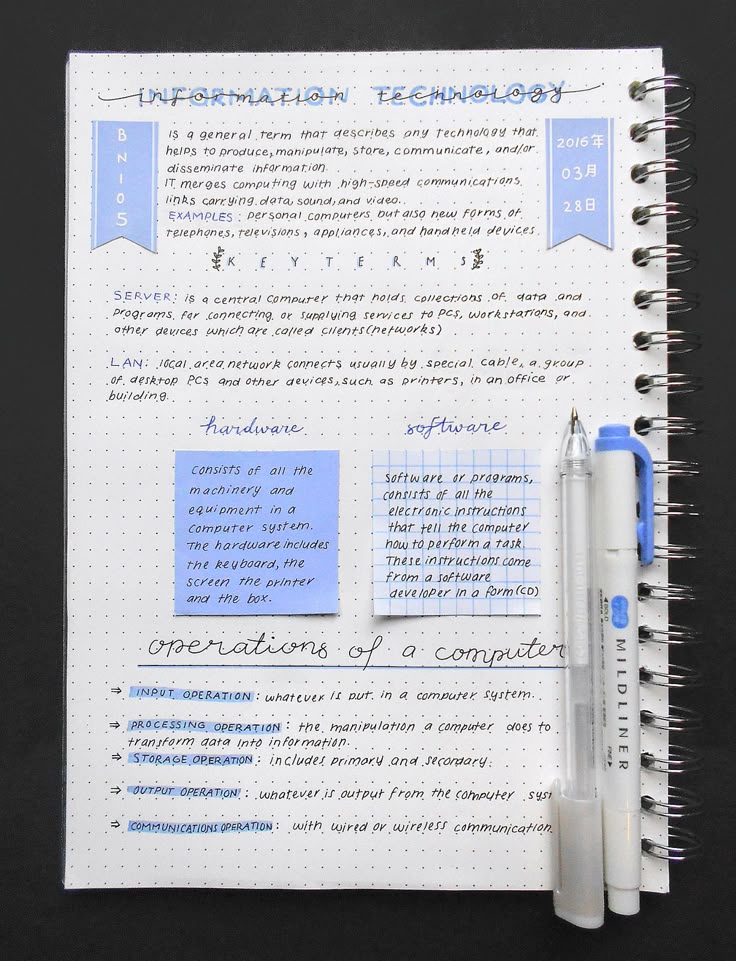 INFORMATION TECHNOLOGY
information technology
BN105
is a general term that describes any technology that
helps to produce, manipulate, store, communicate, and/or
disseminate information.
IT merges computing with high-speed communications
links carrying data, sound, and video.
EXAMPLES: personal computers but also new forms of
telephones, televisions, appliances, and handheld devices.
2016年
03月
28日
KEY TERMS
SERVER: is a central computer that holds collections of data and
programs for connecting or supplying services to PCs, workstations, and
other devices which are called clients (networks)
LAN: local area network connects usually by special cable, a group
of desktop PCs and other devices, such as printers, in an office or
building.
hardware
Consists of all the
machinery and
equipment in a
computer system.
The hardware includes
the keyboard, the
screen the printer
and the box.
software
Software or programs,
consists of all the
electronic instructions
that tell the computer
how to perform a task.
These instructions come
from a software
developer in a form (CD)
operations of a computer
⇒ INPUT OPERATION: whatever is put in a computer system.
⇒ PROCESSING OPERATION: the manipulation a computer does to
transform data into information.
⇒ STORAGE OPERATION: includes primary and secondary.
⇒ OUTPUT OPERATION: whatever is output from the computer syst
⇒ COMMUNICATIONS OPERATION: with wired or wireless communication
MILDLINER
BOLD